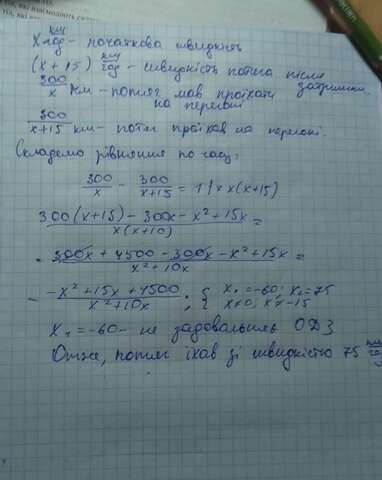 х км/год - початкова швидкість
(х + 15) км/год - швидкість потяга після затримки.
300/х км - потяг мав проїхати на перегоні
300/(х+15) км - потяг проїхав на перегоні.
Складемо рівняння по часу:
300/х - 300/(х+15) = 1 | × х(х+15)
(300(х+15) - 300х - х² + 15х)/(х(х+10)) =
= (300х + 4500 - 300х - х² + 15х)/(х² + 10х) =
= (-х² + 15х + 4500)/(х² + 10х) ; { х₁ = -60; х₂ = 75
х≠0; х≠-15
х₁ = -60 - не задовольняє ОДЗ
Отже, потяг їхав зі швидкістю 75 км/год